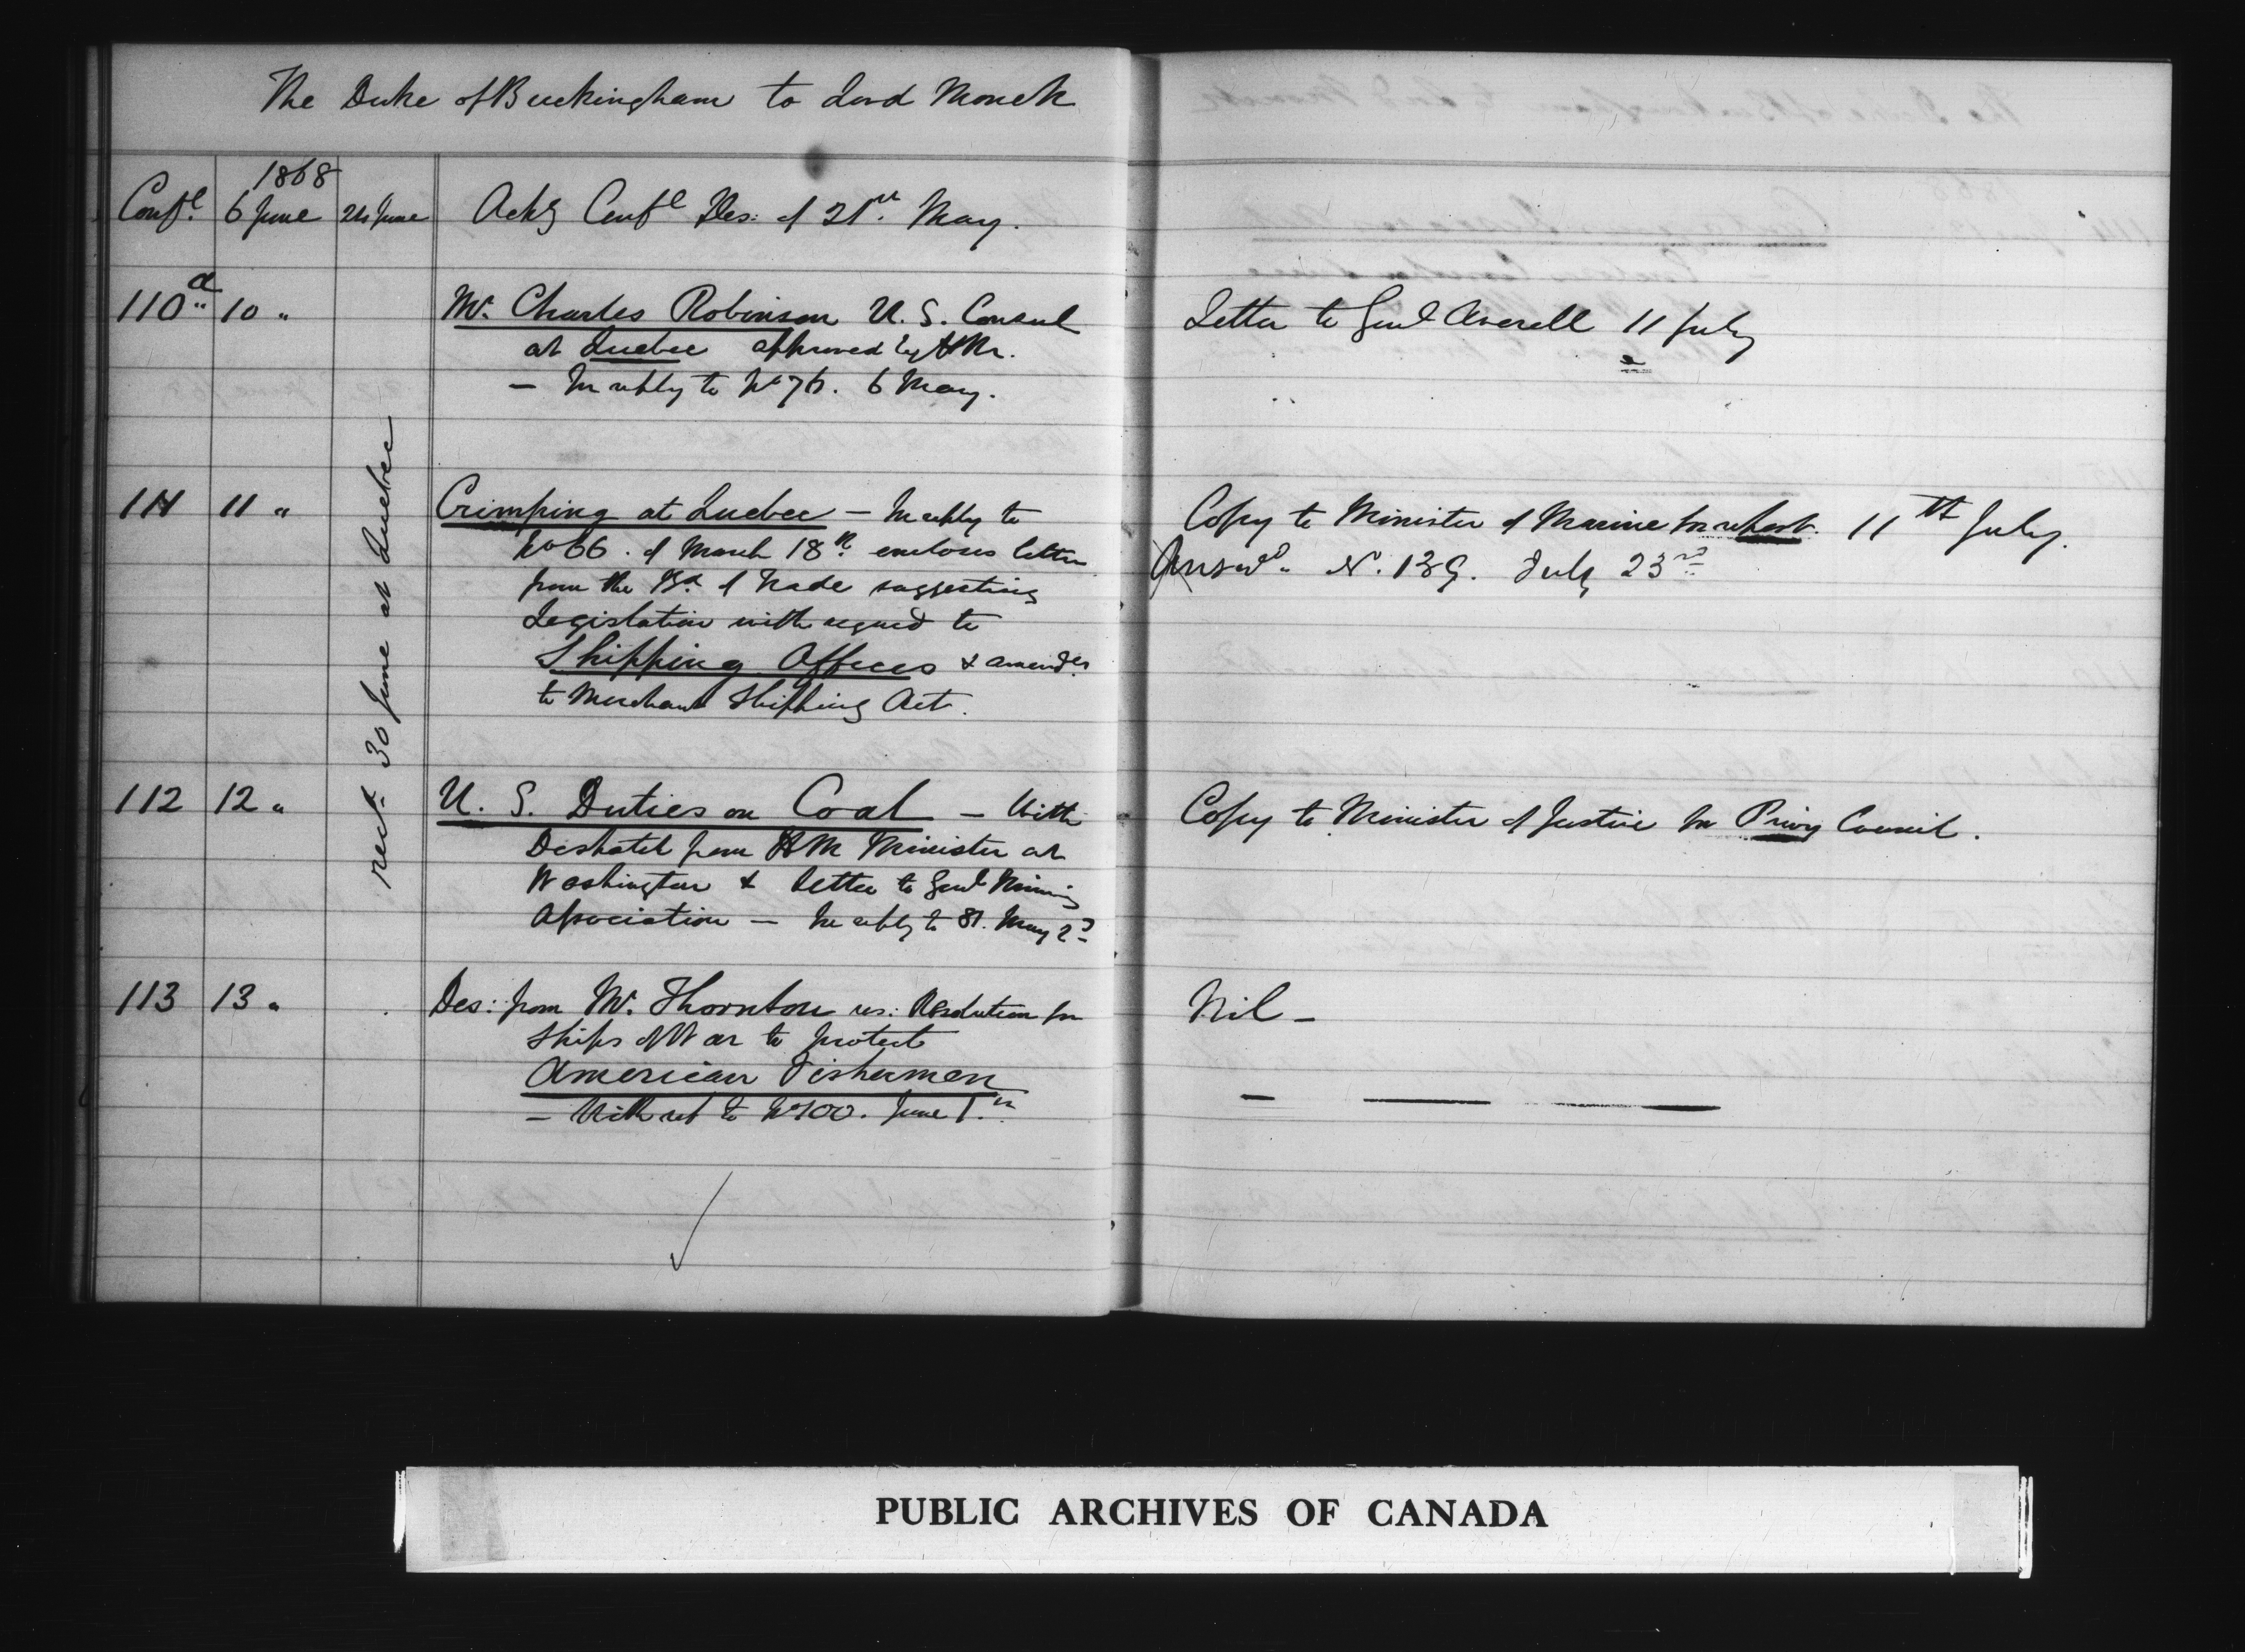 The Duke of Buckingham to Lord Monck
1868
Conf^l. 6 June 24 June Ackg Conf^l Des: of 21st May.
110a " 10 " Mr. Charles Robinson U.S. Consul
at Quebec approved by HM.
— In reply to No 76. 6 May.
Letter to Genl Averell 11 July
recd. 30 June at Quebec
111 11 " Crimping at Quebec — In reply to
No 66. of March 18th. encloses letter
from the Bd. of Trade suggesting
Legislation with regard to
Shipping Offices & amendts.
to Merchant Shipping Act.
Copy to Minister of Marine for report. 11th July.
Answd. N. 139. July 23rd
112 12 " U.S. Duties on Coal — With
Despatch from HM Minister at
Washington & letter to Genl Mining
Association — In reply to 81. May 2d
Copy to Minister of Justice for Privy Council.
113 13 " Des: from Mr. Thornton res: Resolution for
Ships of War to protect
American Fishermen
— With ref to No 100. June 1.st
Nil —
PUBLIC ARCHIVES OF CANADA